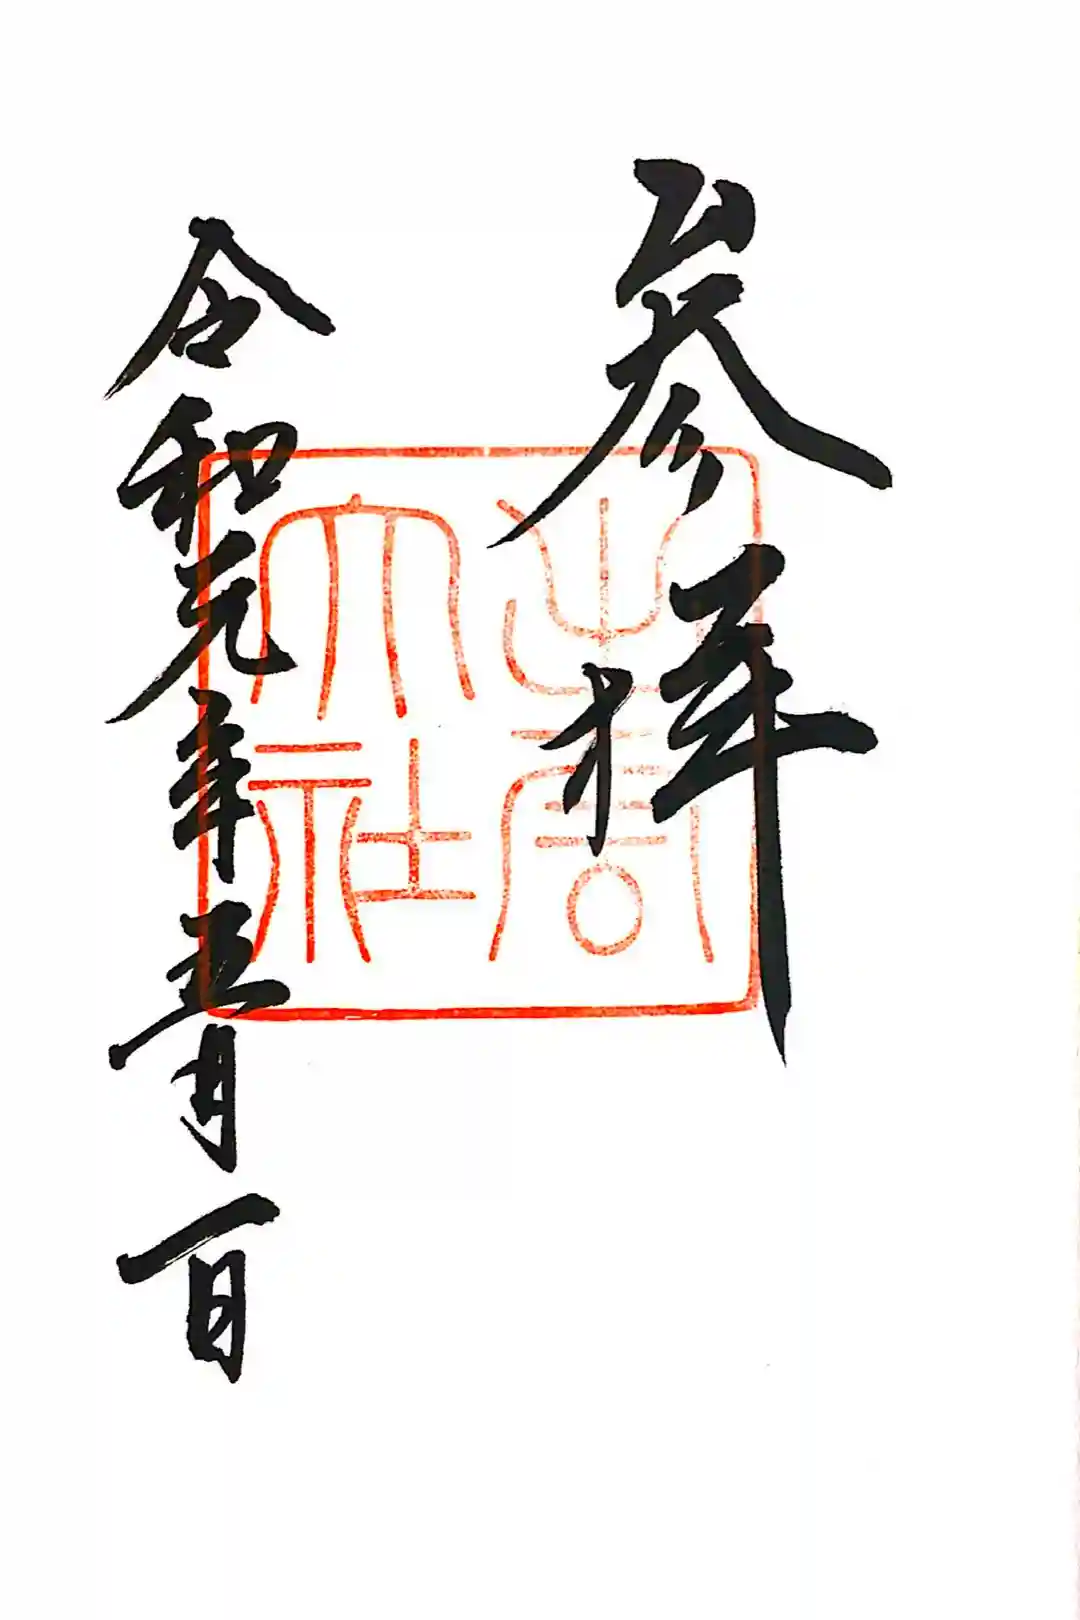 参拝
出雲
大社
令和元年五月一日